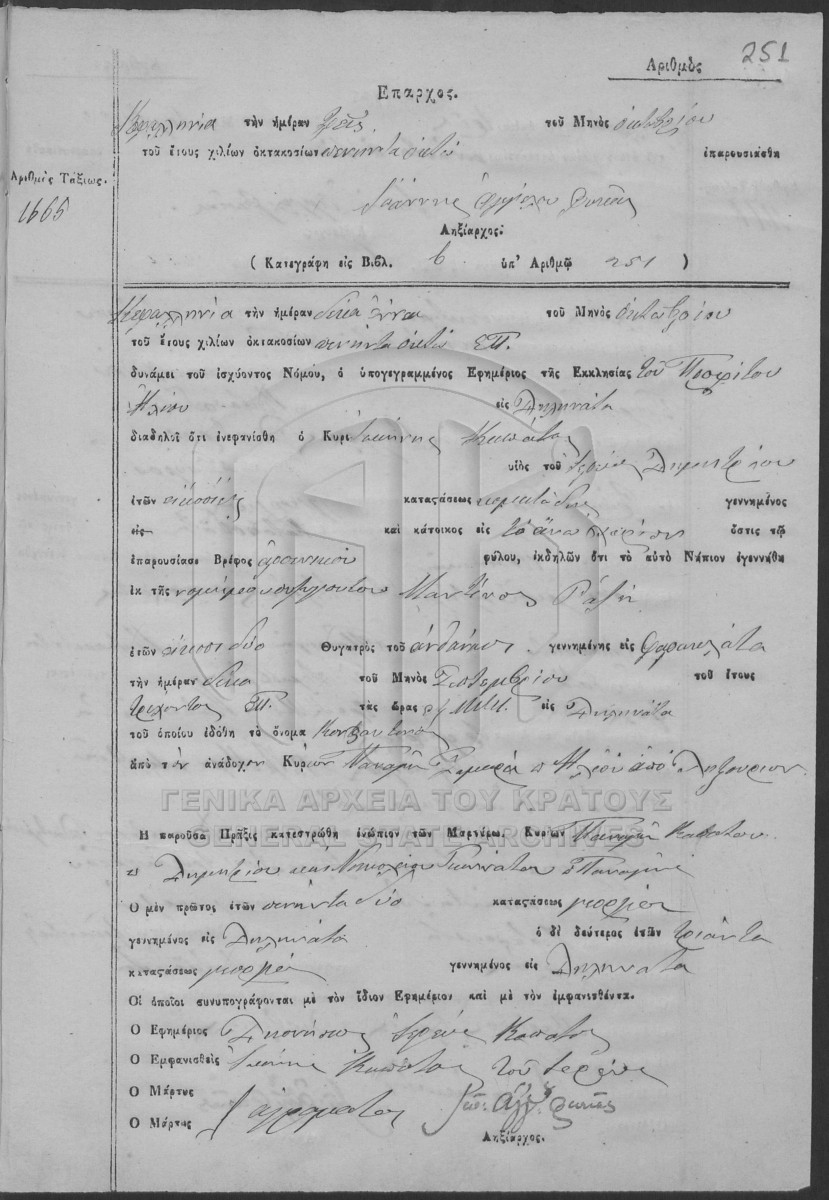 Αριθμὸς 251
Επαρχος.
Κεφαλληνία τὴν ἡμέραν τοῦ Μηνὸς ὀκτωβρίου
τοῦ ἔτους χιλίων ὀκτακοσίων πενηντα ὀκτὼ ἐπαρουσιάσθη
Αριθμὸς Τάξεως.
1665
Ἰωάννης
Ληξίαρχος.
( Κατεγράφη εἰς Βιβλ. 6 ὑπ' Αριθμῷ 251 )
Κεφαλληνία τὴν ἡμέραν δεκα ἐννεα τοῦ Μηνὸς ὀκτωβρίου
τοῦ ἔτους χιλίων ὀκτακοσίων πενηντα ὀκτὼ ΕΠ.
δυνάμει τοῦ ἰσχύοντος Νόμου, ὁ ὑπογεγραμμένος Εφημέριος τῆς Εκκλησίας τοῦ Προφίτου
Ἠλίου εἰς Διλινάτα
διαδηλοῖ ὅτι ἐνεφανίσθη ὁ Κυρι Ἰωάννης Καπάτος
υἱὸς τοῦ Ἱερέως Δημητρίου
ἐτῶν εἰκοσιέξ καταςάσεως γεννημένος
εἰς καὶ κάτοικος εἰς τὸ ἄνω χωρίον ὅστις τῷ
ἐπαρουσίασε Βρέφος ἀρσενικοῦ φύλου, ἐκδηλῶν ὅτι τὸ αὐτὸ Νήπιον ἐγεννήθη
ἐκ τῆς νομίμου συζύγου του
ἐτῶν εἰκοσι δύο Θυγατρὸς τοῦ γεννημένης εἰς Φαρακλάτα
τὴν ἡμέραν δεκα τοῦ Μηνὸς Σεπτεμβρίου τοῦ ἔτους
τρέχοντος ΕΠ. τὰς ὥρας εἰς Διλινάτα
τοῦ ὁποίου ἐδόθη τὸ ὄνομα
ἀπὸ τὸν ἀνάδοχον Κύριον Παναγῆ ἀπὸ Ληξούριον
ΓΕΝΙΚΑ ΑΡΧΕΙΑ ΤΟΥ ΚΡΑΤΟΥΣ
GENERAL STATE ARCHIVES
Η παροῦσα Πρᾶξις κατεστρώθη ἐνώπιον τῶν Μαρτύρω, Κυρίων Παναγῆ Καπατου
Δημητρίου καὶ Νικολάου
Ο μὲν πρῶτος ἐτῶν πενηντα δύο καταςάσεως γεωργὸς
γεννημένος εἰς Διλινάτα ὁ δὲ δεύτερος ἐτῶν τριάντα
καταςάσεως γεωργὸς γεννημένος εἰς Διλινάτα
Οἱ ὁποῖοι συνυπογράφονται μὲ τὸν ἴδιον Εφημέριον καὶ μὲ τὸν ἐμφανισθέντα.
Ο Εφημέριος Διονήσιος Ἱερεὺς Καπατος
Ο Εμφανισθεὶς Ἰωάνης Καπάτος τοῦ ἱερέως
Ο Μάρτυς
Ο Μάρτυς ἀγράματοι
Ληξίαρχος.